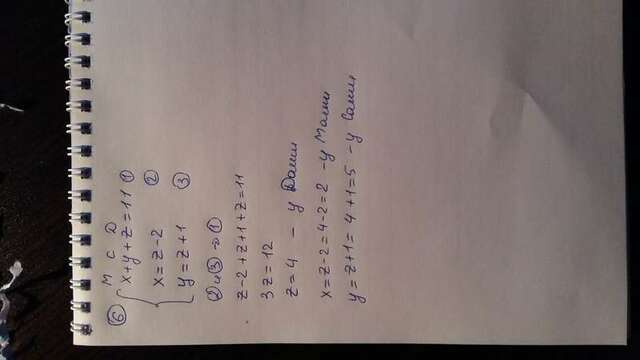 ⑥ М С D
x+y+z=11 ①
x=z-2 ②
y=z+1 ③
② и ③ → ①
z-2+z+1+z=11
3z=12
z=4 - у Даши
x=z-2=4-2=2 - у Маши
y=z+1=4+1=5 - у Саши